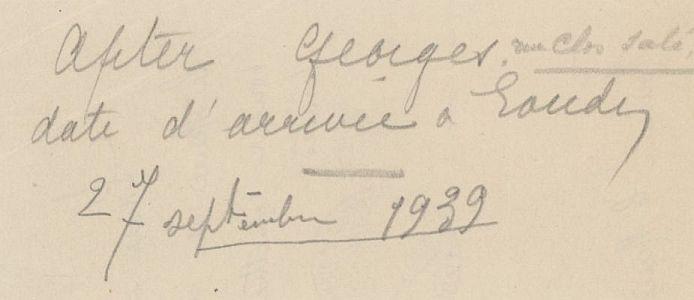 Apter Georges. rue Clos Salé
date d'arrivée à Loudun
27 septembre 1939